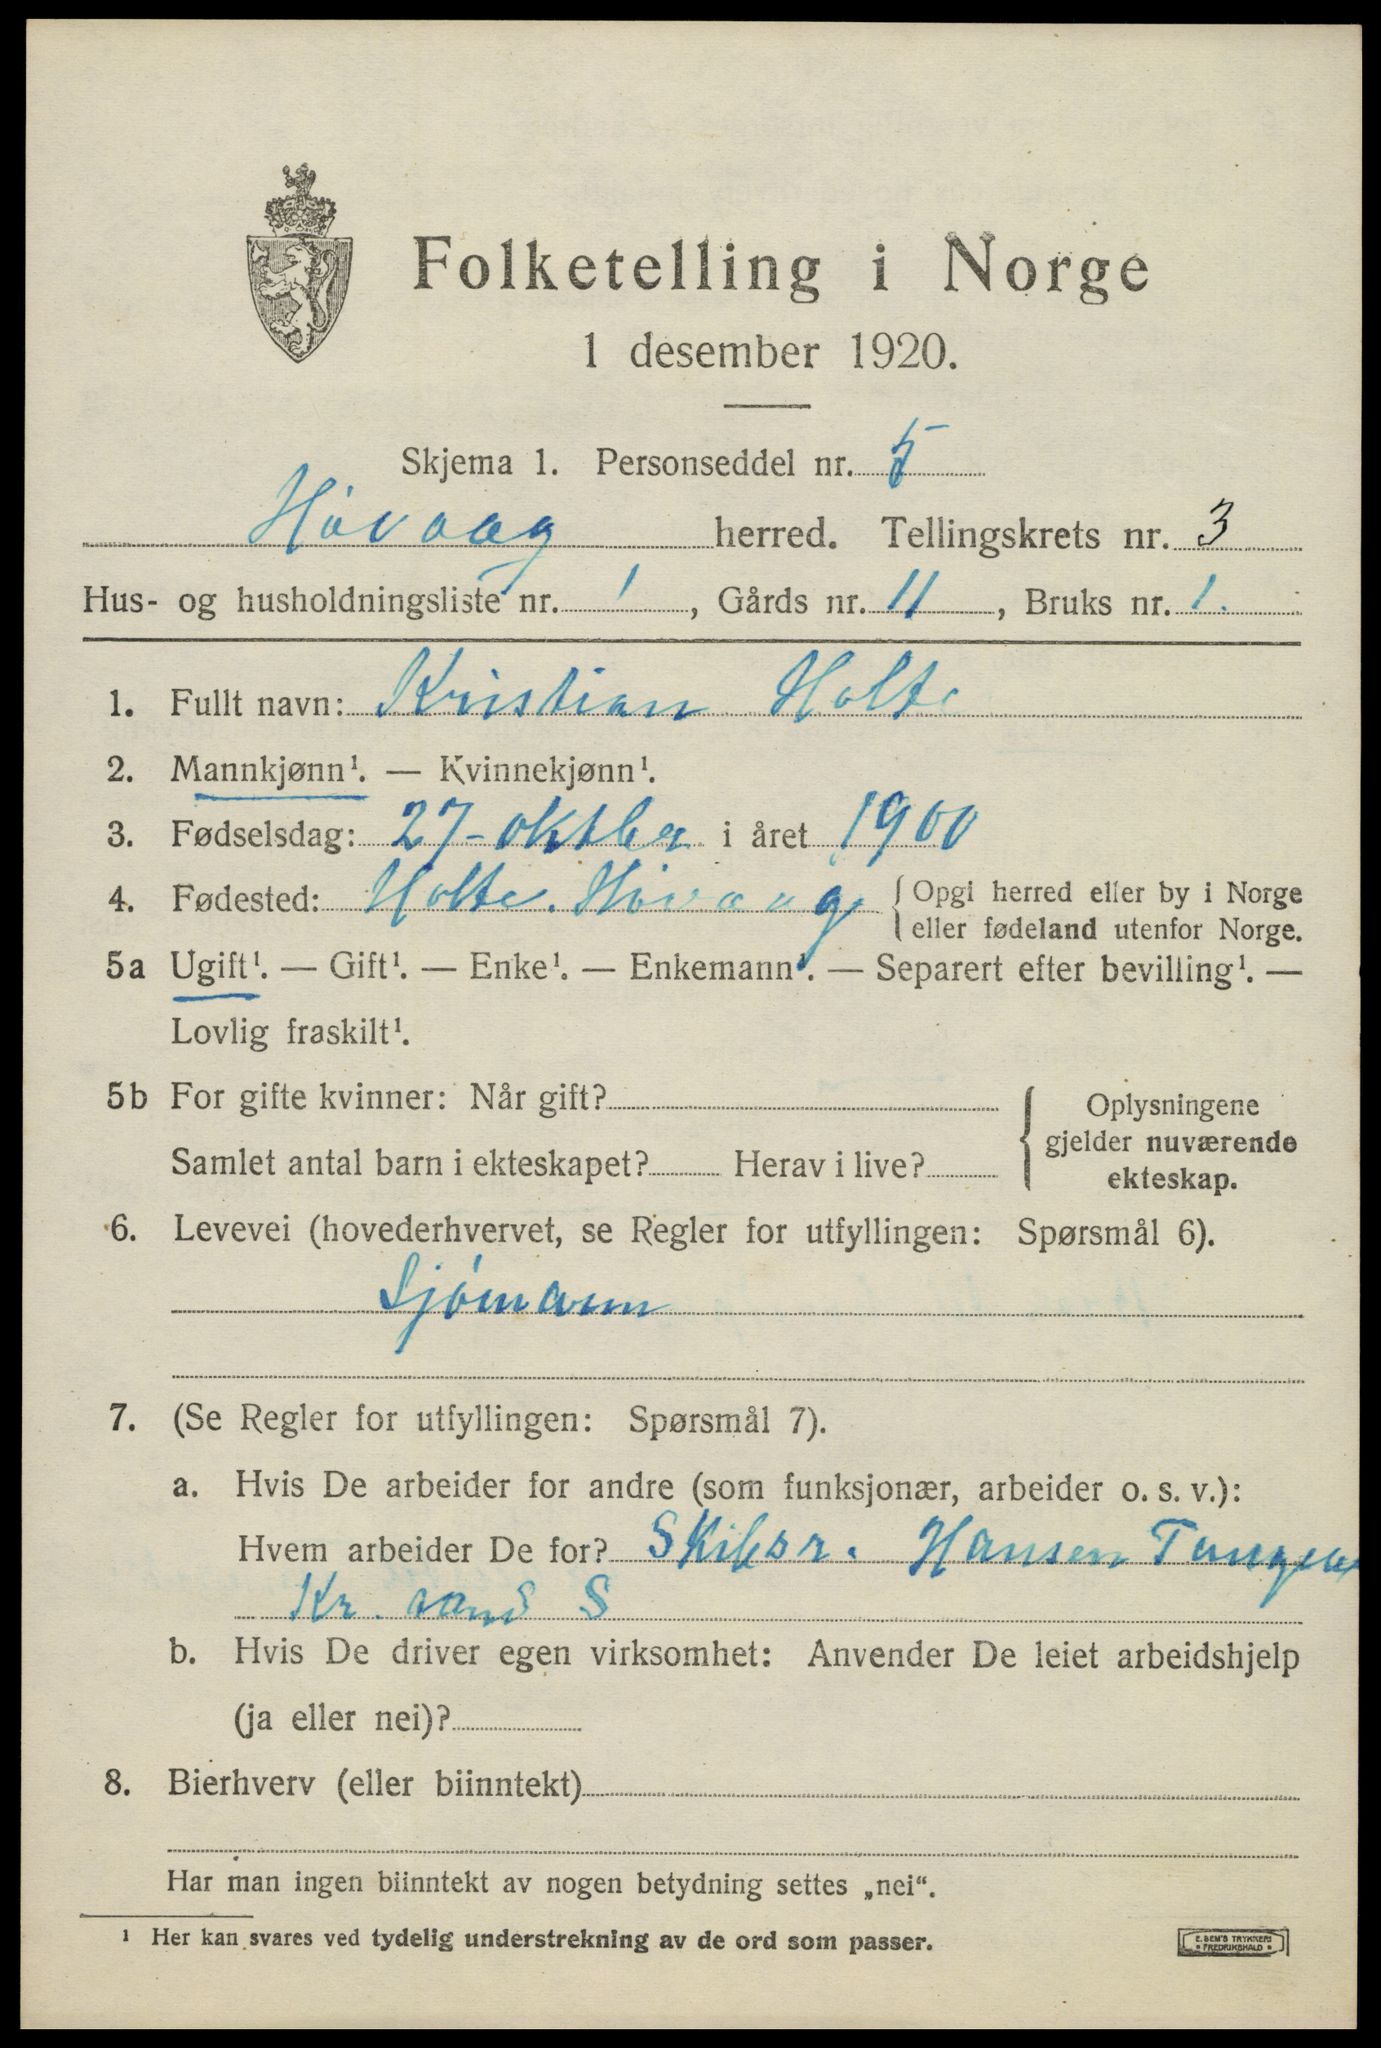 Folketelling i Norge
1 desember 1920.
Skjema 1. Personseddel nr. 5
Høvaag herred. Tellingskrets nr. 3
Hus- og husholdningsliste nr. 1, Gårds nr. 11, Bruks nr. 1.
1. Fullt navn: Kristian Holte
2. Mannkjønn¹. — Kvinnekjønn¹.
3. Fødselsdag: 27-oktber i året 1900
4. Fødested: Holte. Høvaag { Opgi herred eller by i Norge
eller fødeland utenfor Norge.
5a Ugift¹. — Gift¹. — Enke¹. — Enkemann¹. — Separert efter bevilling¹. —
Lovlig fraskilt¹.
5b For gifte kvinner: Når gift?
Samlet antal barn i ekteskapet? Herav i live?
{ Oplysningene
gjelder nuværende
ekteskap.
6. Levevei (hovederhvervet, se Regler for utfyllingen: Spørsmål 6).
Sjømann
7. (Se Regler for utfyllingen: Spørsmål 7).
a. Hvis De arbeider for andre (som funksjonær, arbeider o. s. v.):
Hvem arbeider De for? Skibsr. Hansen Tangen
Kr. sand S
b. Hvis De driver egen virksomhet: Anvender De leiet arbeidshjelp
(ja eller nei)?
8. Bierhverv (eller biinntekt)
Har man ingen biinntekt av nogen betydning settes „nei“.
¹ Her kan svares ved tydelig understrekning av de ord som passer.
E. SEM'S TRYKKERI
* FREDRIKSHALD *